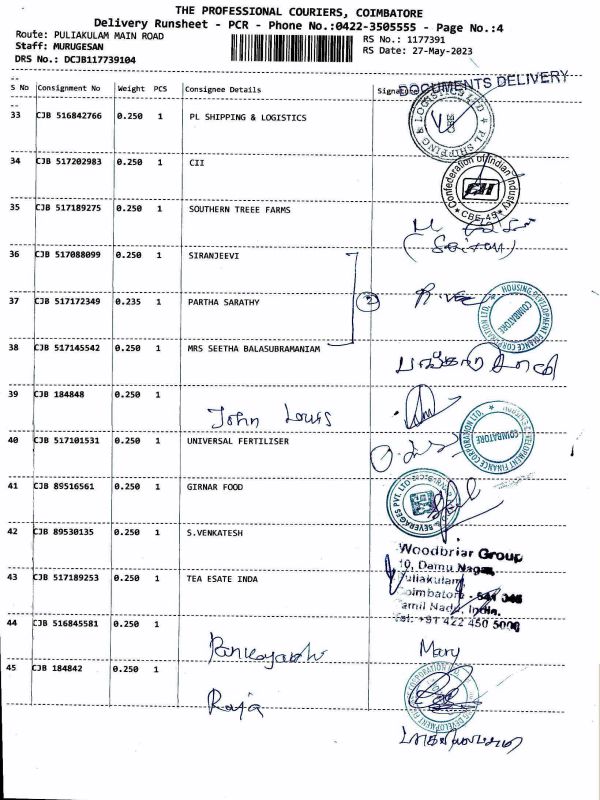 THE PROFESSIONAL COURIERS, COIMBATORE
Delivery Runsheet - PCR - Phone No.:0422-3505555 - Page No.:4
Route: PULIAKULAM MAIN ROAD
Staff: MURUGESAN
DRS No.: DCJB117739104
RS No.: 1177391
RS Date: 27-May-2023
DOCUMENTS DELIVERY
S No Consignment No Weight PCS Consignee Details
33 CJB 516842766 0.250 1 PL SHIPPING & LOGISTICS
PL SHIPPING & LOGISTICS
34 CJB 517202983 0.250 1 CII
Confederation of Indian Industry
CII
CBE-45
35 CJB 517189275 0.250 1 SOUTHERN TREEE FARMS
36 CJB 517088099 0.250 1 SIRANJEEVI
37 CJB 517172349 0.235 1 PARTHA SARATHY
2
HOUSING DEVELOPMENT FINANCE CORPORATION LTD.
COIMBATORE
38 CJB 517145542 0.250 1 MRS SEETHA BALASUBRAMANIAM
39 CJB 184848 0.250 1
John Louis
40 CJB 517101531 0.250 1 UNIVERSAL FERTILISER
HOUSING DEVELOPMENT FINANCE CORPORATION LTD.
COIMBATORE
41 CJB 89516561 0.250 1 GIRNAR FOOD
BEVERAGES PVT. LTD
42 CJB 89530135 0.250 1 S.VENKATESH
Woodbriar Group
10, Damu Nagar,
Puliakulam,
Coimbatore - 641 045
Tamil Nadu, India.
Tel: +91 422 450 5000
43 CJB 517189253 0.250 1 TEA ESATE INDA
44 CJB 516845581 0.250 1
Mary
45 CJB 184842 0.250 1
Raja